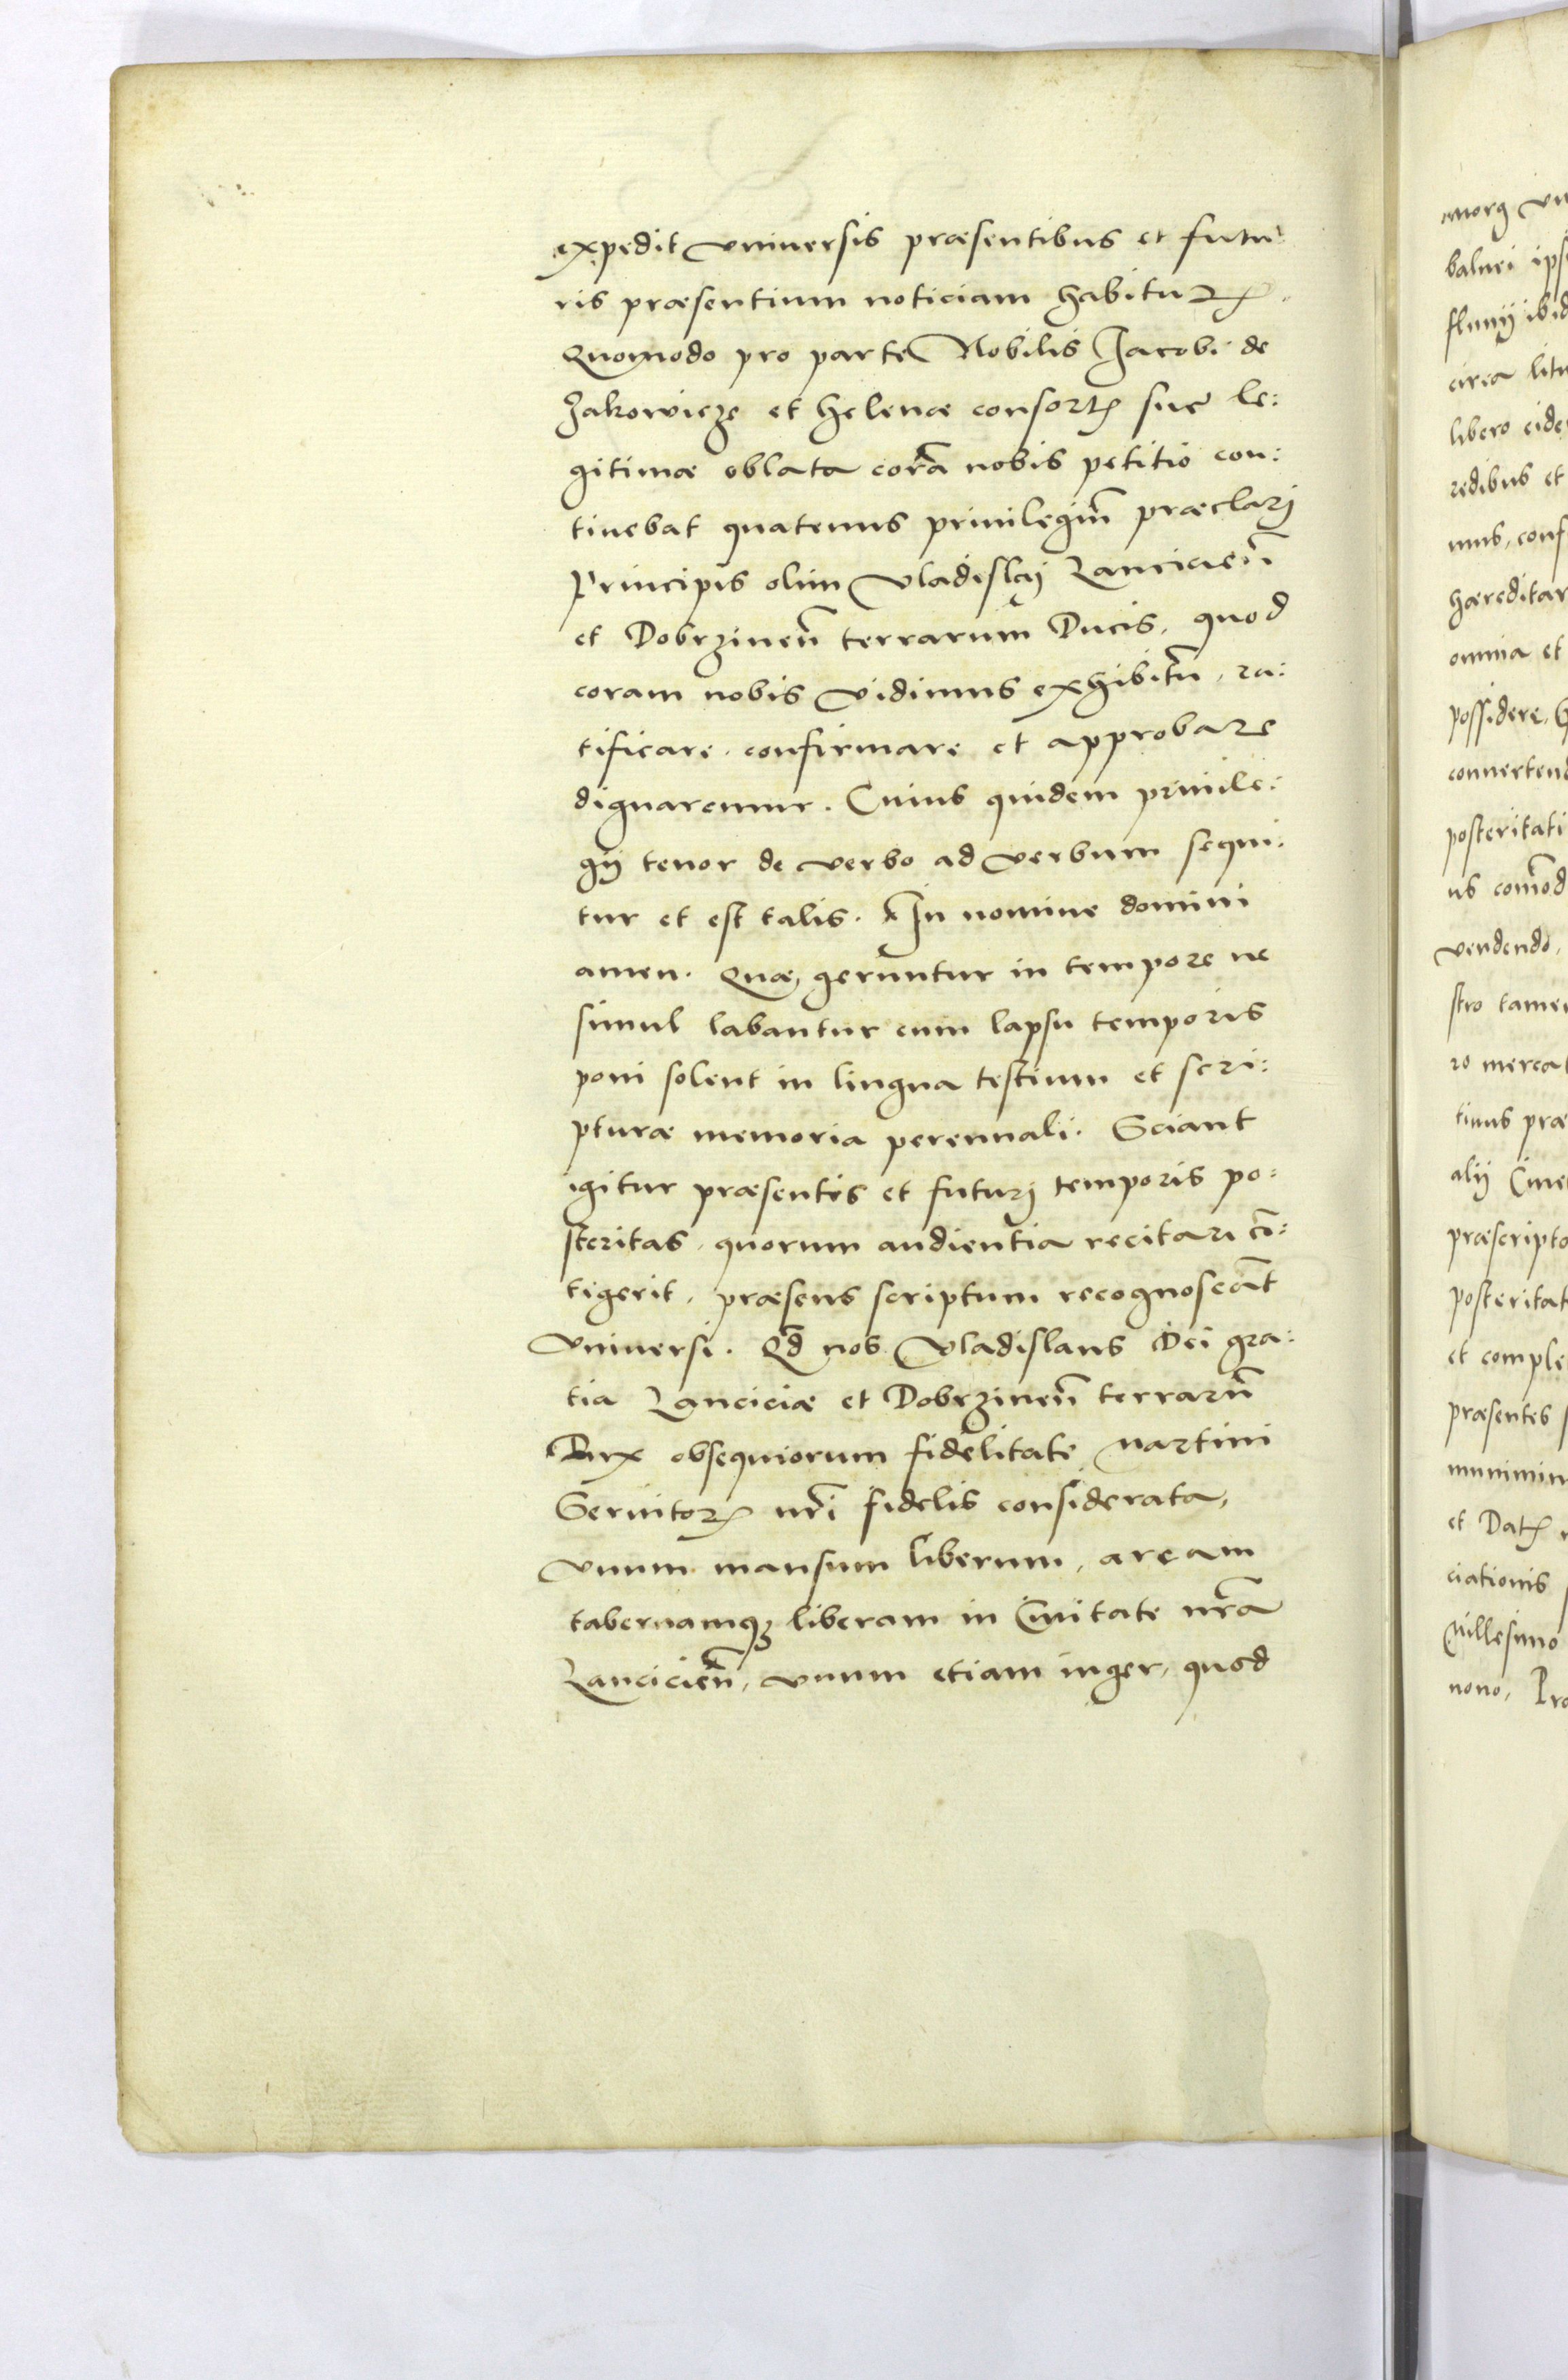 expedit vniuersis præsentibus et futu:
ris præsentium noticiam habituꝝ.
Quomodo pro parte Nobilis Jacobi de
Jakowicze et Helenæ consortꝭ sue le:
gitimæ oblata corā nobis petitio con:
tinebat quatenus priuilegiū præclarj
Principis olim Vladislaj Lanciciēn
et Dobrzineñ terrarum Ducis, quod
coram nobis vidimus exhibitū, ra:
tificare, confirmare et approbare
dignaremur. Cuius quidem priuile:
gij tenor de verbo ad verbum sequi:
tur et est talis. In nomine domini
amen. Quæ geruntur in tempore ne
simul labantur cum lapsu temporis
poni solent in lingua testium et scri:
pturæ memoria perennali. Sciant
igitur præsentis et futurj temporis po:
steritas, quorum audientia recitari cō:
tigerit, præsens scriptum recognoscāt
vniuersi. Qd̄ nos Vladislaus Dei gra:
tia Lanciciæ et Dobrzineñ terrarū
Dux obsequiorum fidelitate Martini
Seruitoꝝ nr̄i fidelis considerata,
vnum mansum liberum, aream
tabernamqȝ liberam in Ciuitate nr̄a
Lancicieñ, vnum etiam iuger, quod
morg
balnei
fluuij
circa
libero
redibus et
mus, conf
hæreditar
omnia et
possidere,
conuertend
posteritati
us com̄od
vendendo,
stro tamen
ro mercat
tinus præ
alij
præscripto
posteritat
et comple
præsentes
munimin
et Datꝭ
ciationis
Millesimo
nono,